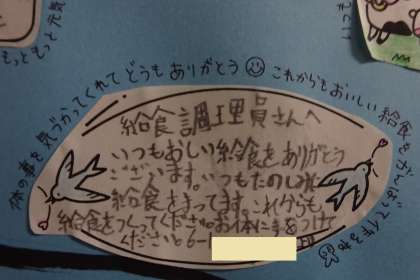 体の事を気づかってくれてどうもありがとう
これからもおいしい給食をがんばって作るね
給食調理員さんへ
いつもおしい給食をありがとう
ございます。いつもたのしみに
給食をまってます。これからも
給食をつくてください。お体に気をつけて
くださいと6-1
もっともっと元気
いつも